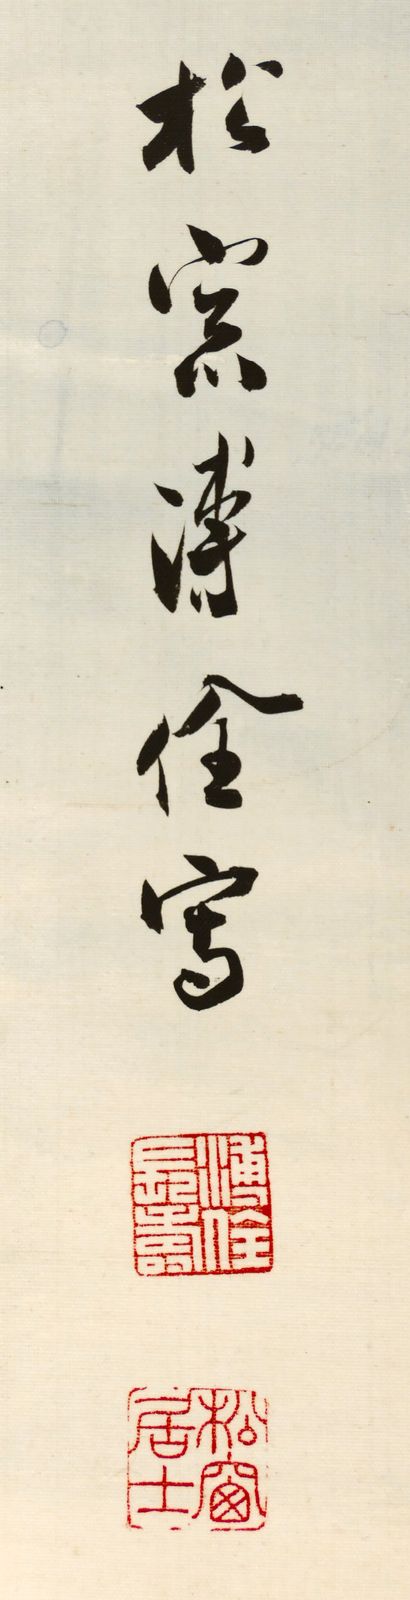 松窗溥佺寫
溥佺長壽
松窗居士